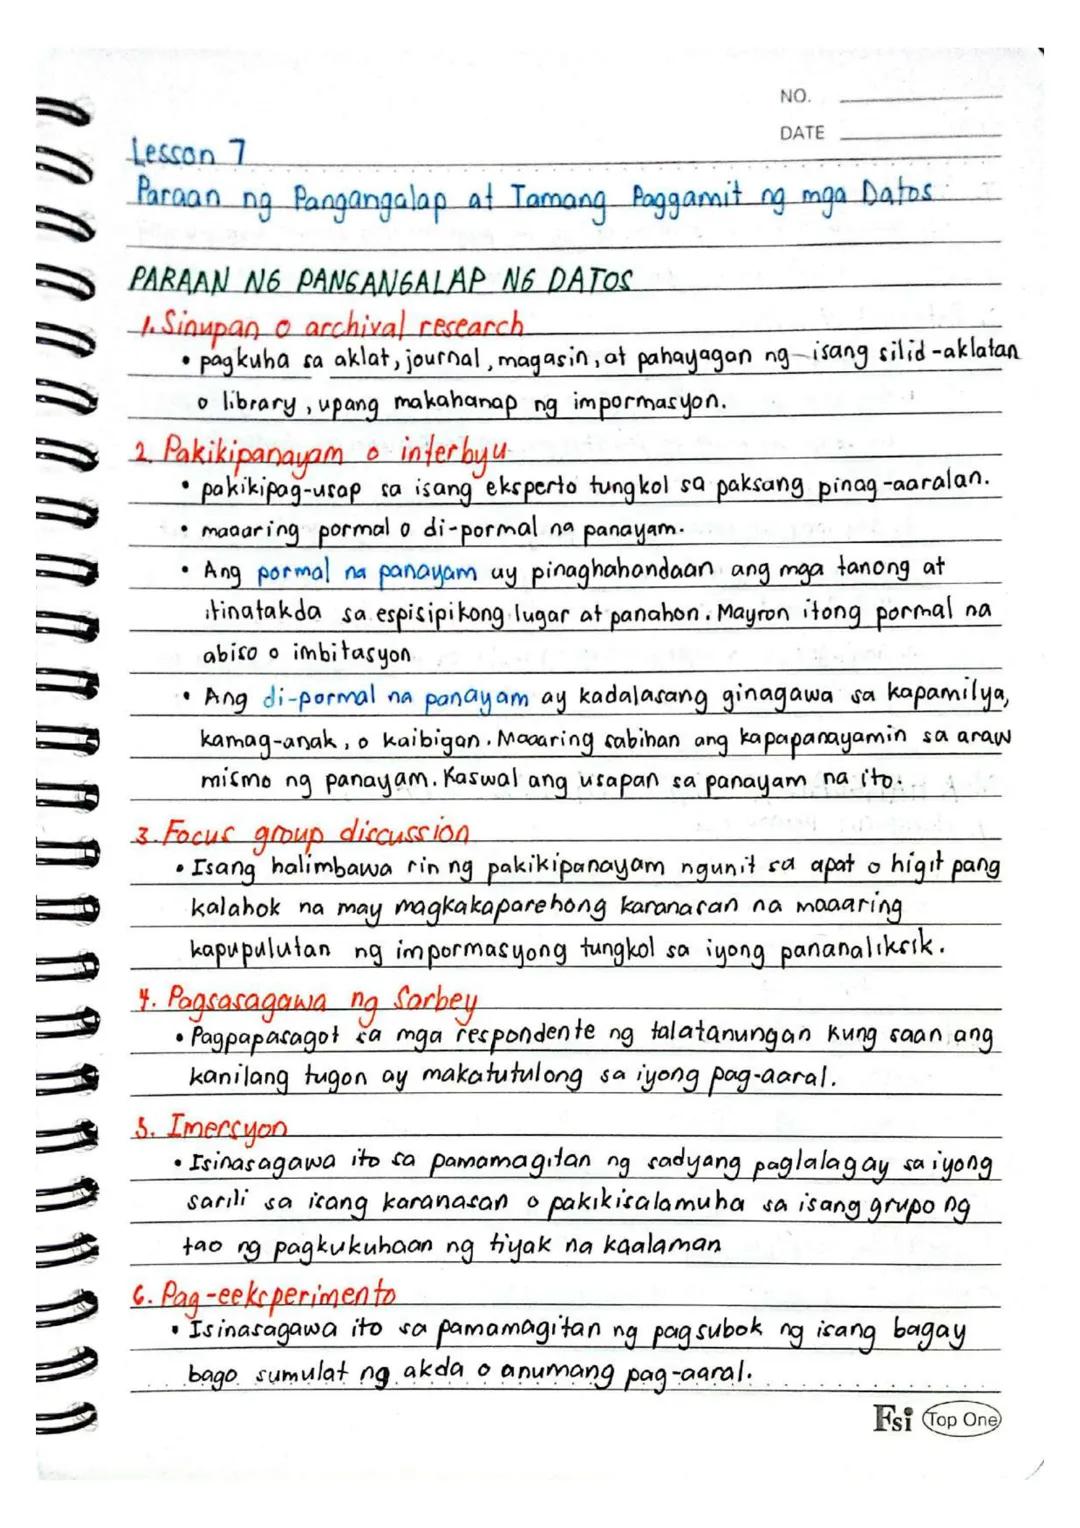 NO.
DATE
Lesson 7
Paraan ng Pangangalap at Tamang Paggamit ng mga Datos
PARAAN NG PANGANGALAP NG DATOS
1. Sinupan o archival research
• pagkuha sa aklat, journal, magasin, at pahayagan ng isang silid-aklatan
o library, upang makahanap ng impormasyon.
2. Pakikipanayam o interbyu
• pakikipag-usap sa isang eksperto tungkol sa paksang pinag-aaralan.
• maaaring pormal o di-pormal na panayam.
• Ang pormal na panayam ay pinaghahandaan ang mga tanong at
itinatakda sa espisipikong lugar at panahon. Mayron itong pormal na
abiso o imbitasyon
• Ang di-pormal na panayam ay kadalasang ginagawa sa kapamilya,
kamag-anak, o kaibigan. Maaaring sabihan ang kapapanayamin sa araw
mismo ng panayam. Kaswal ang usapan sa panayam na ito.
3. Focus group discussion
• Isang halimbawa rin ng pakikipanayam ngunit sa apat o higit pang
kalahok na may magkakaparehong karanasan na maaaring
kapupulutan ng impormasyong tungkol sa iyong pananaliksik.
4. Pagsasagawa ng Sarbey
• Pagpapasagot sa mga respondente ng talatanungan kung saan ang
kanilang tugon ay makatutulong sa iyong pag-aaral.
5. Imersyon
• Isinasagawa ito sa pamamagitan ng sadyang paglalagay sa iyong
sarili sa isang karanasan o pakikisalamuha sa isang grupo ng
tao ng pagkukuhaan ng tiyak na kaalaman
6. Pag-eeksperimento
• Isinasagawa ito sa pamamagitan ng pagsubok ng isang bagay
bago sumulat ng akda o anumang pag-aaral.
Fsi Top One